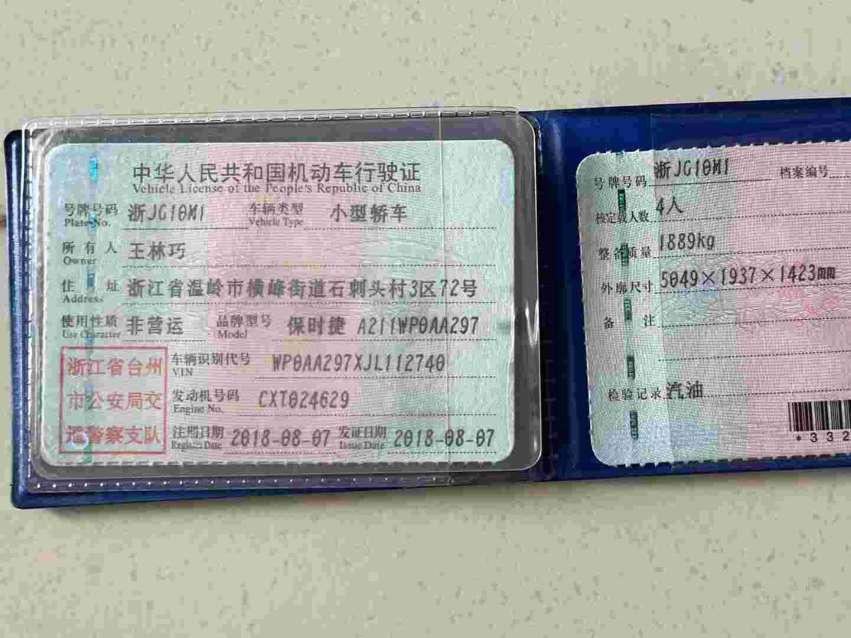 中华人民共和国机动车行驶证
Vehicle License of the People's Republic of China
号牌号码 浙JG10M1 车辆类型 小型轿车
Plate No. Vehicle Type
所有人 王林巧
Owner
住址 浙江省温岭市横峰街道石刺头村3区72号
Address
使用性质 非营运 品牌型号 保时捷 A211WP0AA297
Use Character Model
浙江省台州
市公安局交
通警察支队
车辆识别代号 WP0AA297XJL112740
VIN
发动机号码 CXT024629
Engine No.
注册日期 2018-08-07 发证日期 2018-08-07
Register Date Issue Date
号牌号码 浙JG10M1 档案编号
核定载人数 4人
整备质量 1889kg
外廓尺寸 5049×1937×1423mm
备注
检验记录 汽油
*332